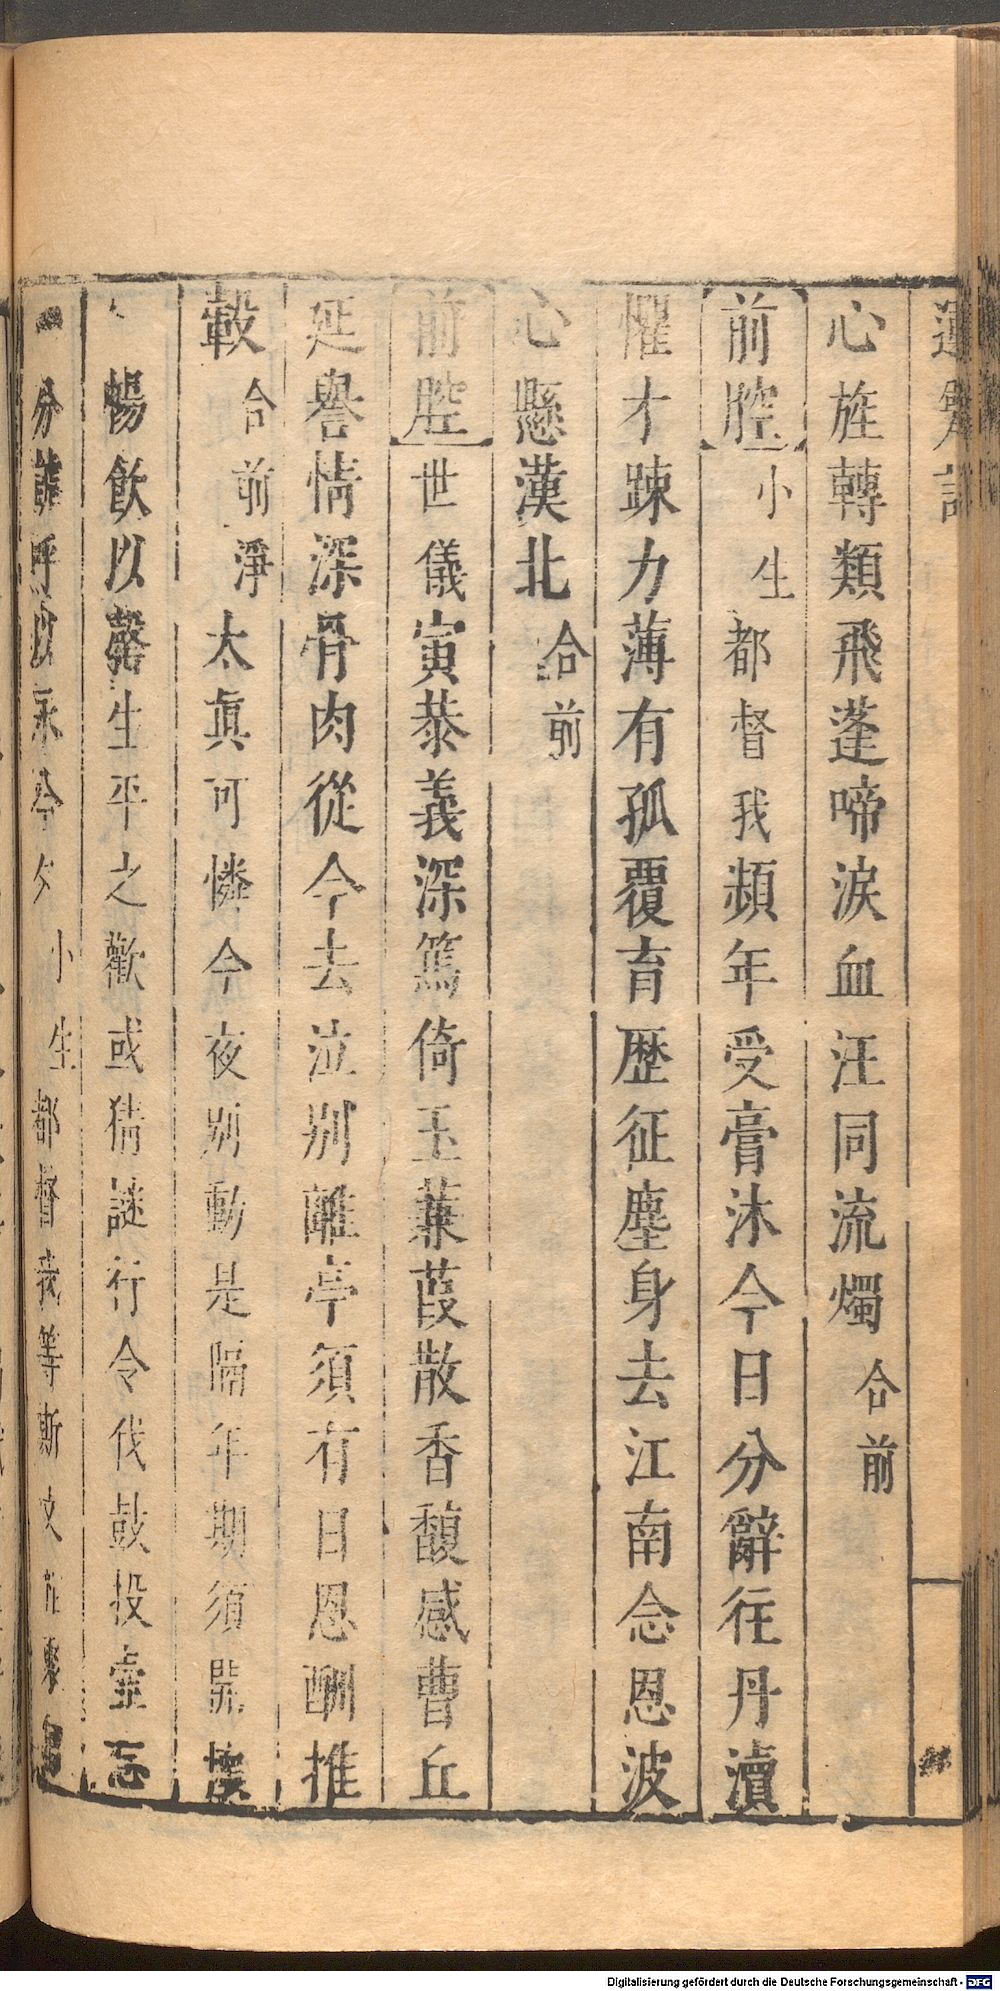 心旌轉類飛蓬啼淚血汪同流燭合前
前腔小生都督我頻年受膏沐今日分辭往丹瀆
懼才踈力薄有孤覆育歷征塵身去江南念恩波
心懸漢北合前
前腔世儀寅恭義深篤倚玉蒹葭散香馥感曹丘
延譽情深骨肉從今去泣別離亭須有日恩酬推
轂合前淨太真可憐今夜別動是隔年期須開懷
暢飲以罄生平之歡或猜謎行令伐鼓投壺忘
分讙呼以永今夕小生都督我等斯文
Digitalisierung gefördert durch die Deutsche Forschungsgemeinschaft - DFG